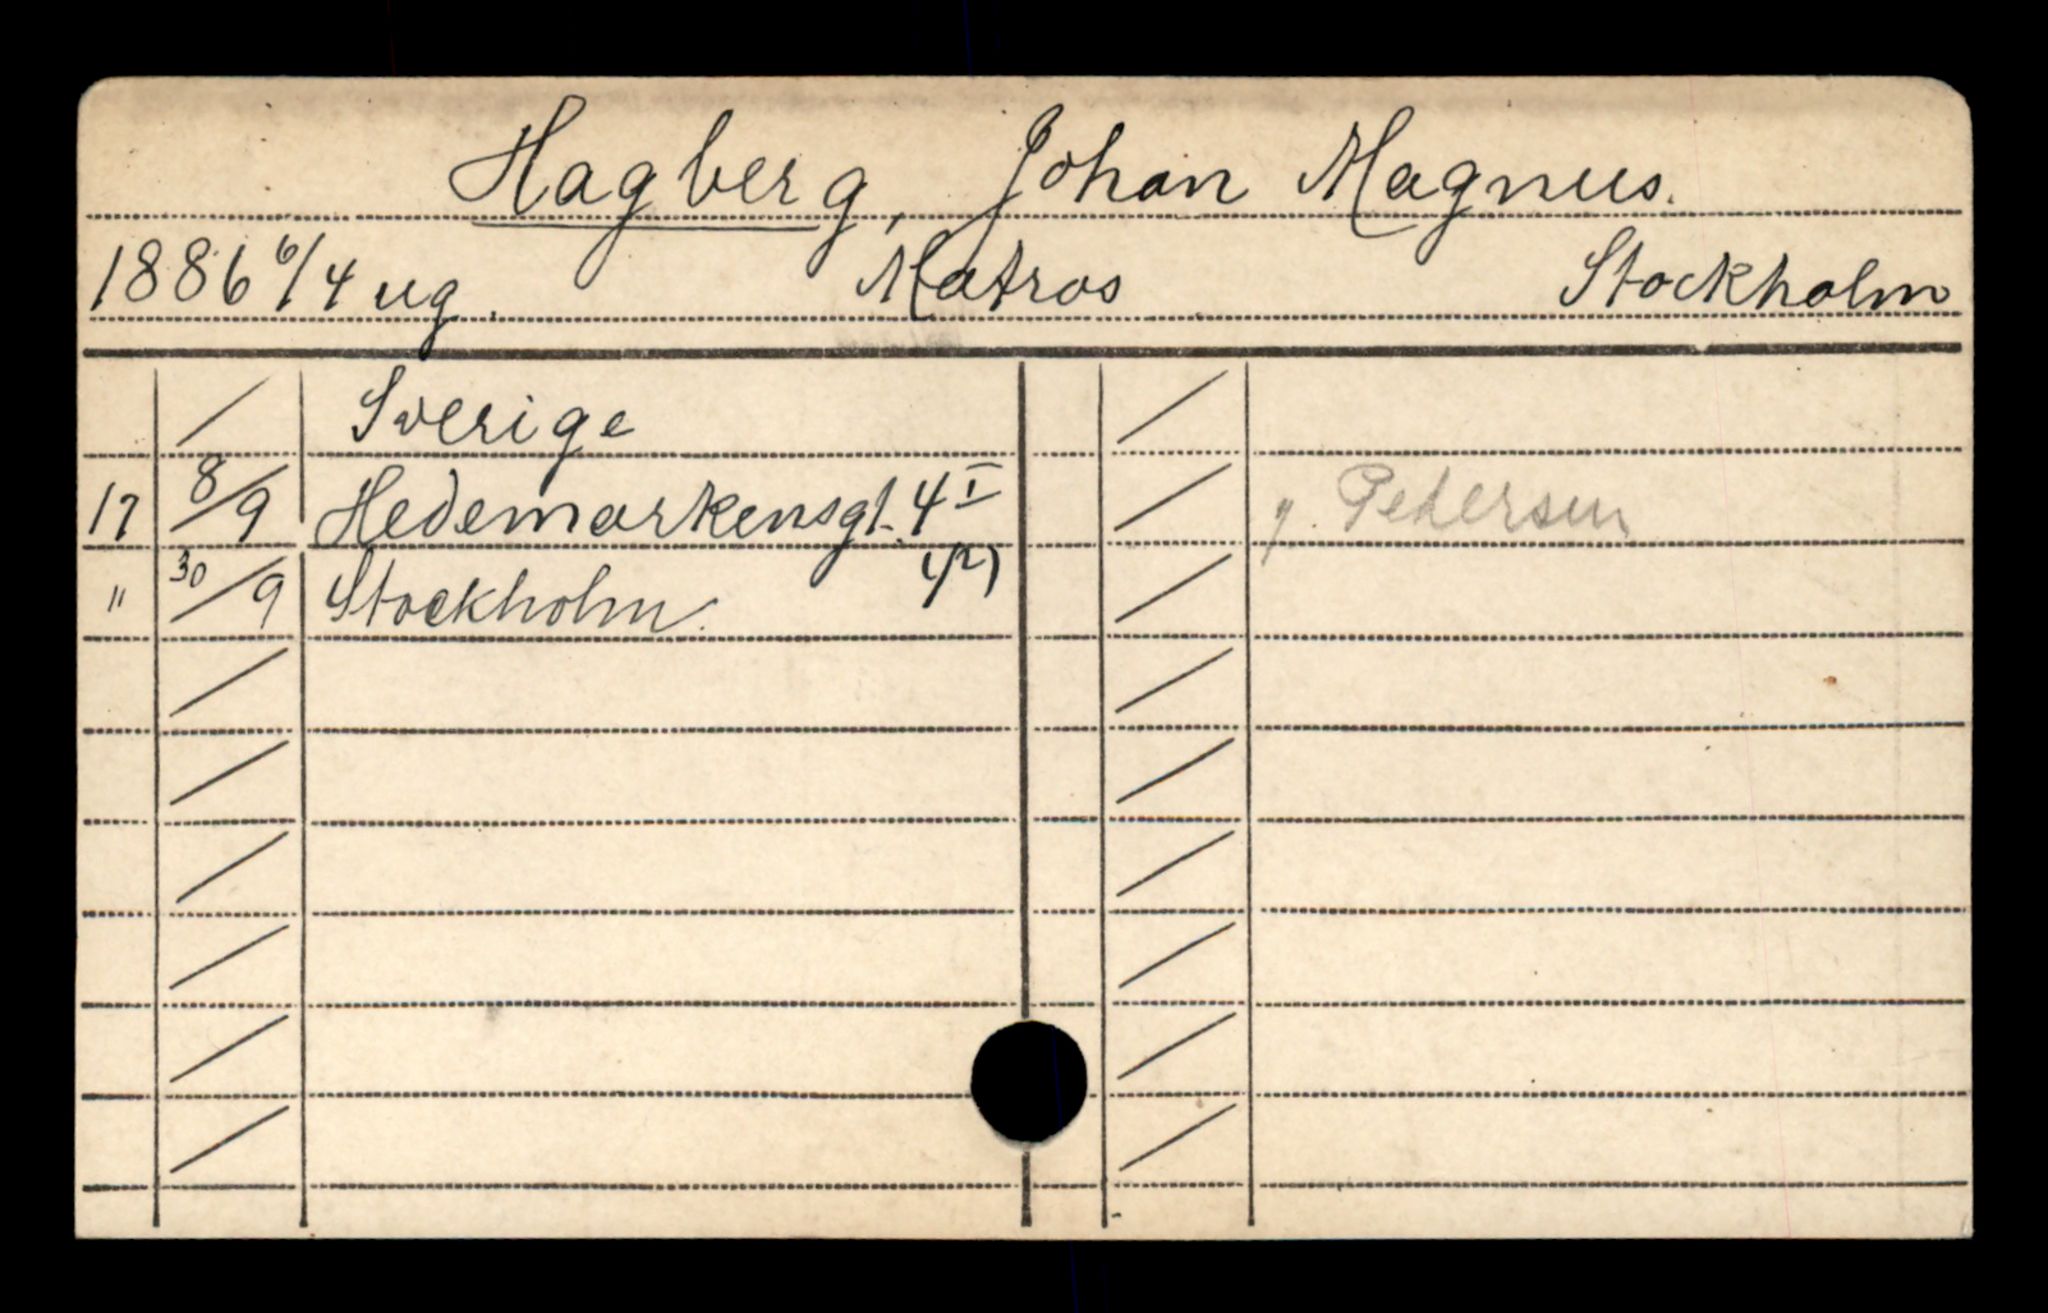 Hagberg, Johan Magnus.
1886 6/4 ug. Matros Stockholm
Sverige
17 8/9 Hedemarkensgt. 4 I
" 30/9 Stockholm.
Pedersen